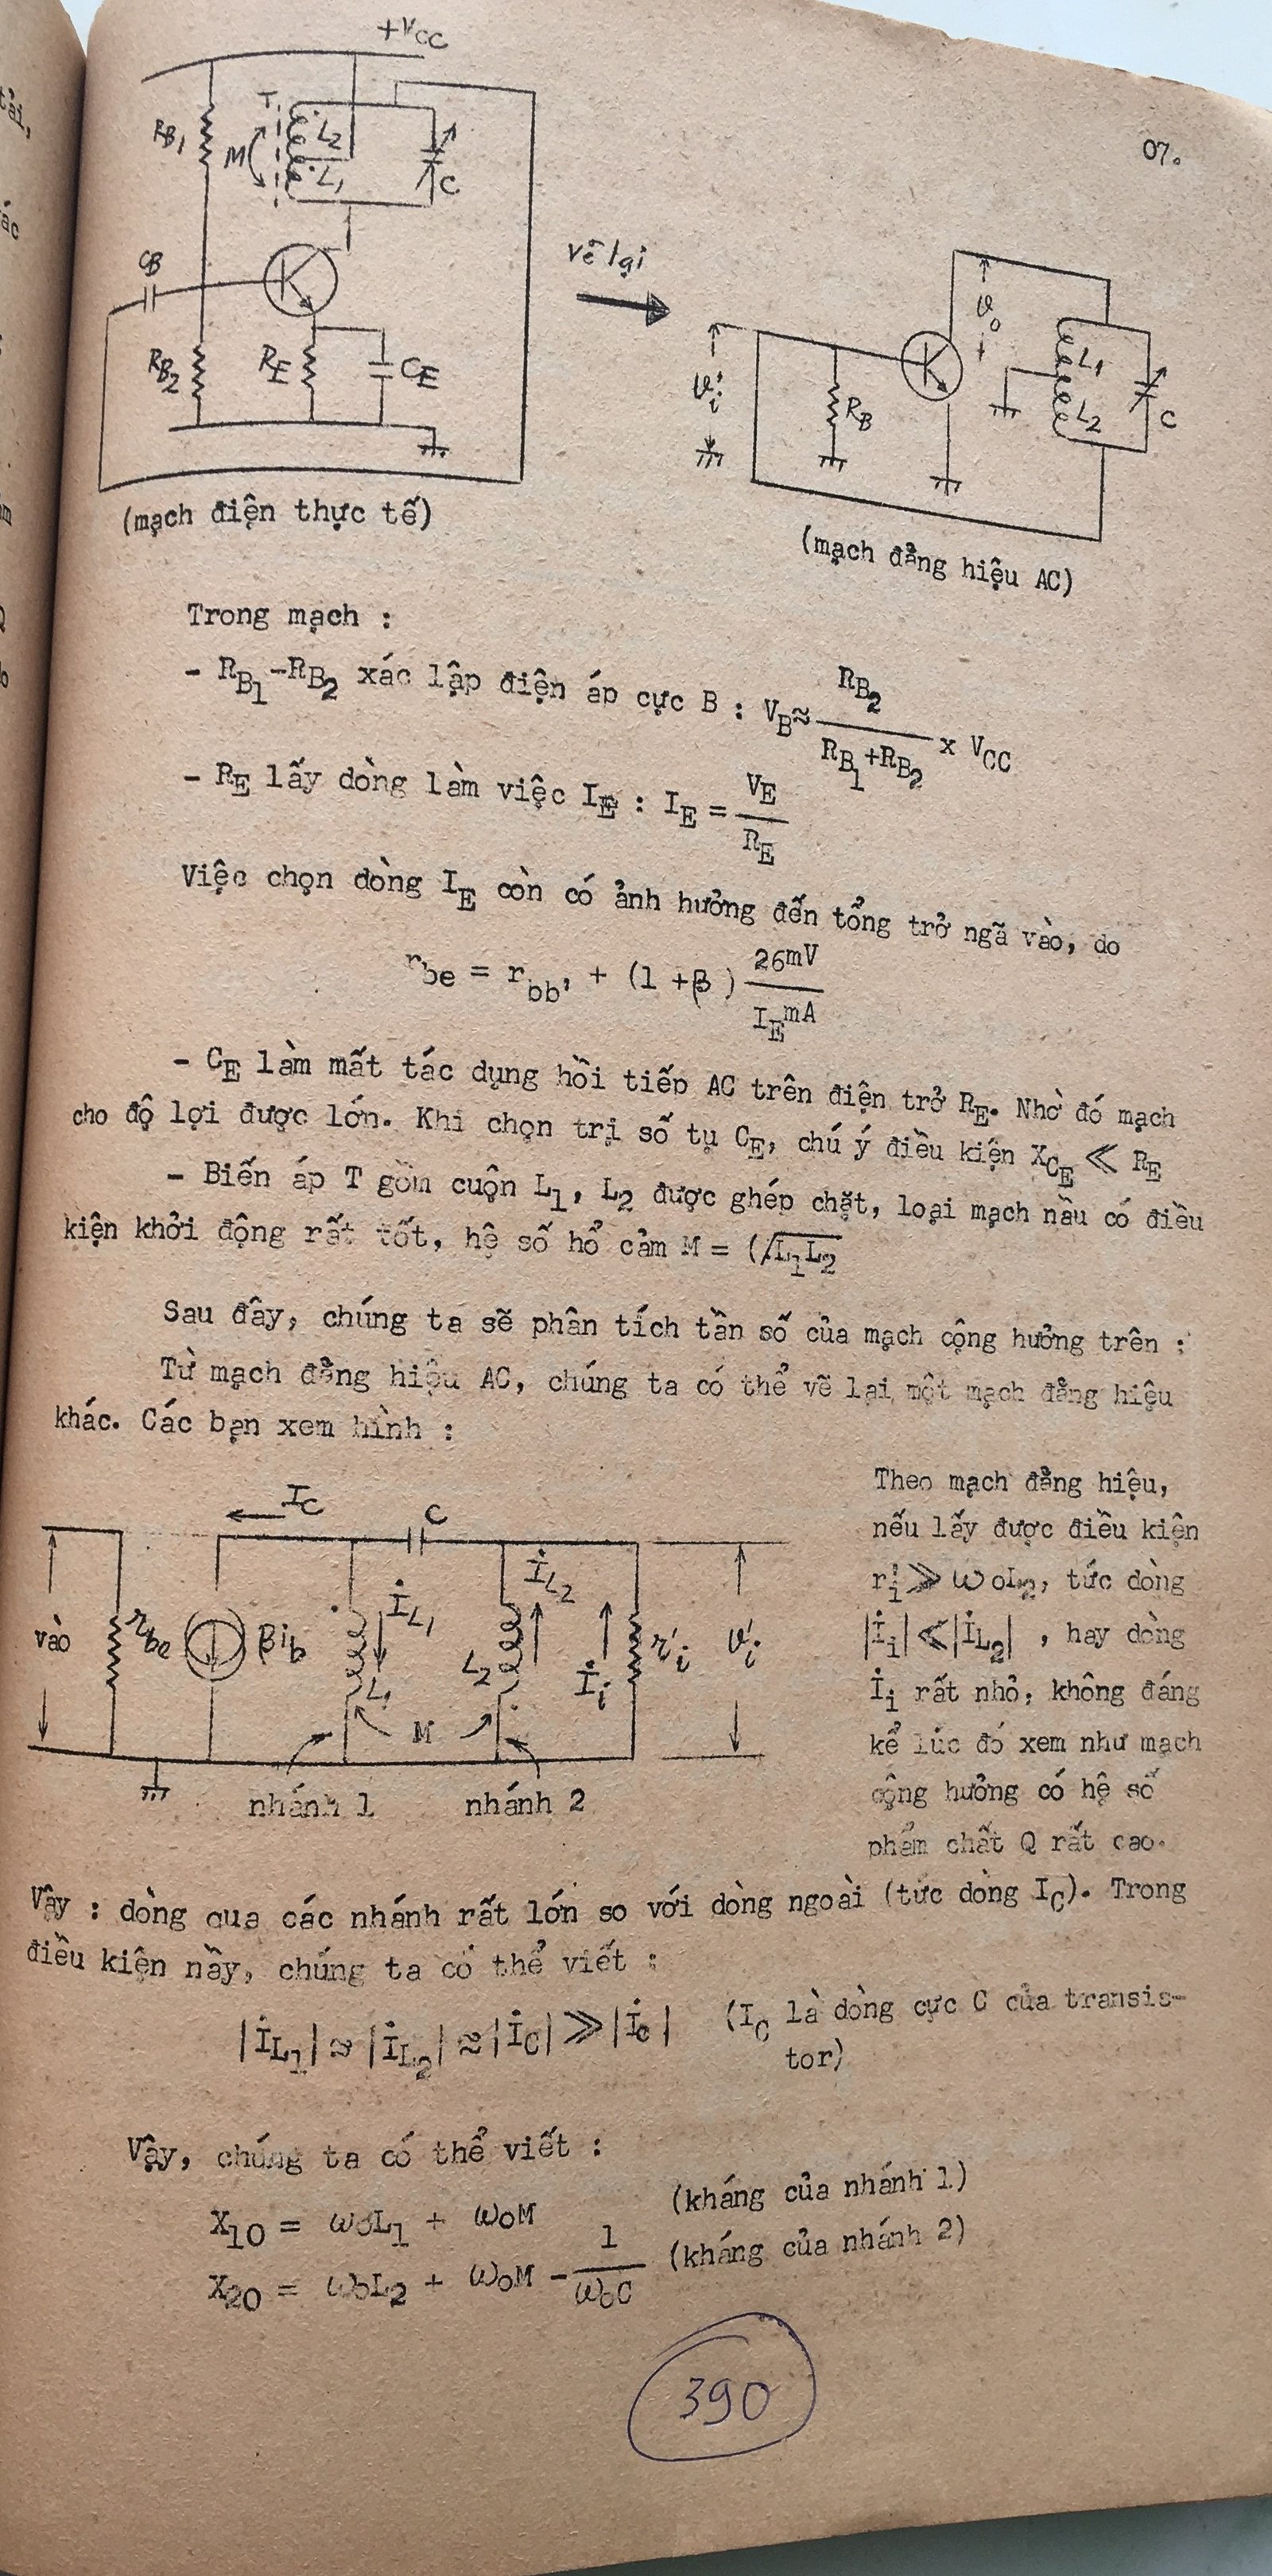 +VCC
07.
RB1
T
M
L2
L1
C
CB
RB2
RE
CE
vẽ lại
vi
RB
vo
L1
L2
C
(mạch điện thực tế)
(mạch đẳng hiệu AC)
Trong mạch :
- RB1-RB2 xác lập điện áp cực B : VB≈ RB2 / RB1+RB2 x VCC
- RE lấy dòng làm việc IE : IE = VE / RE
Việc chọn dòng IE còn có ảnh hưởng đến tổng trở ngã vào, do
rbe = rbb' + (1 +β ) 26mV / IE mA
- CE làm mất tác dụng hồi tiếp AC trên điện trở RE. Nhờ đó mạch
cho độ lợi được lớn. Khi chọn trị số tụ CE, chú ý điều kiện XCE ≪ RE
- Biến áp T gồm cuộn L1, L2 được ghép chặt, loại mạch nầu có điều
kiện khởi động rất tốt, hệ số hổ cảm M = (√L1L2
Sau đây, chúng ta sẽ phân tích tần số của mạch cộng hưởng trên :
Từ mạch đẳng hiệu AC, chúng ta có thể vẽ lại một mạch đẳng hiệu
khác. Các bạn xem hình :
IC
C
vào
rbe
βib
İL1
L1
M
L2
İL2
İi
r'i
v'i
nhánh 1
nhánh 2
Theo mạch đẳng hiệu,
nếu lấy được điều kiện
r'i ≫ ωoL2, tức dòng
|İi| ≪ |İL2| , hay dòng
İi rất nhỏ, không đáng
kể lúc đó xem như mạch
cộng hưởng có hệ số
phẩm chất Q rất cao.
Vậy : dòng qua các nhánh rất lớn so với dòng ngoài (tức dòng IC). Trong
điều kiện nầy, chúng ta có thể viết :
|İL1| ≈ |İL2| ≈ |İC| ≫ |İc| (IC là dòng cực C của transis-
tor)
Vậy, chúng ta có thể viết :
X10 = ωoL1 + ωoM (kháng của nhánh 1)
X20 = ωoL2 + ωoM - 1 / ωoC (kháng của nhánh 2)
390